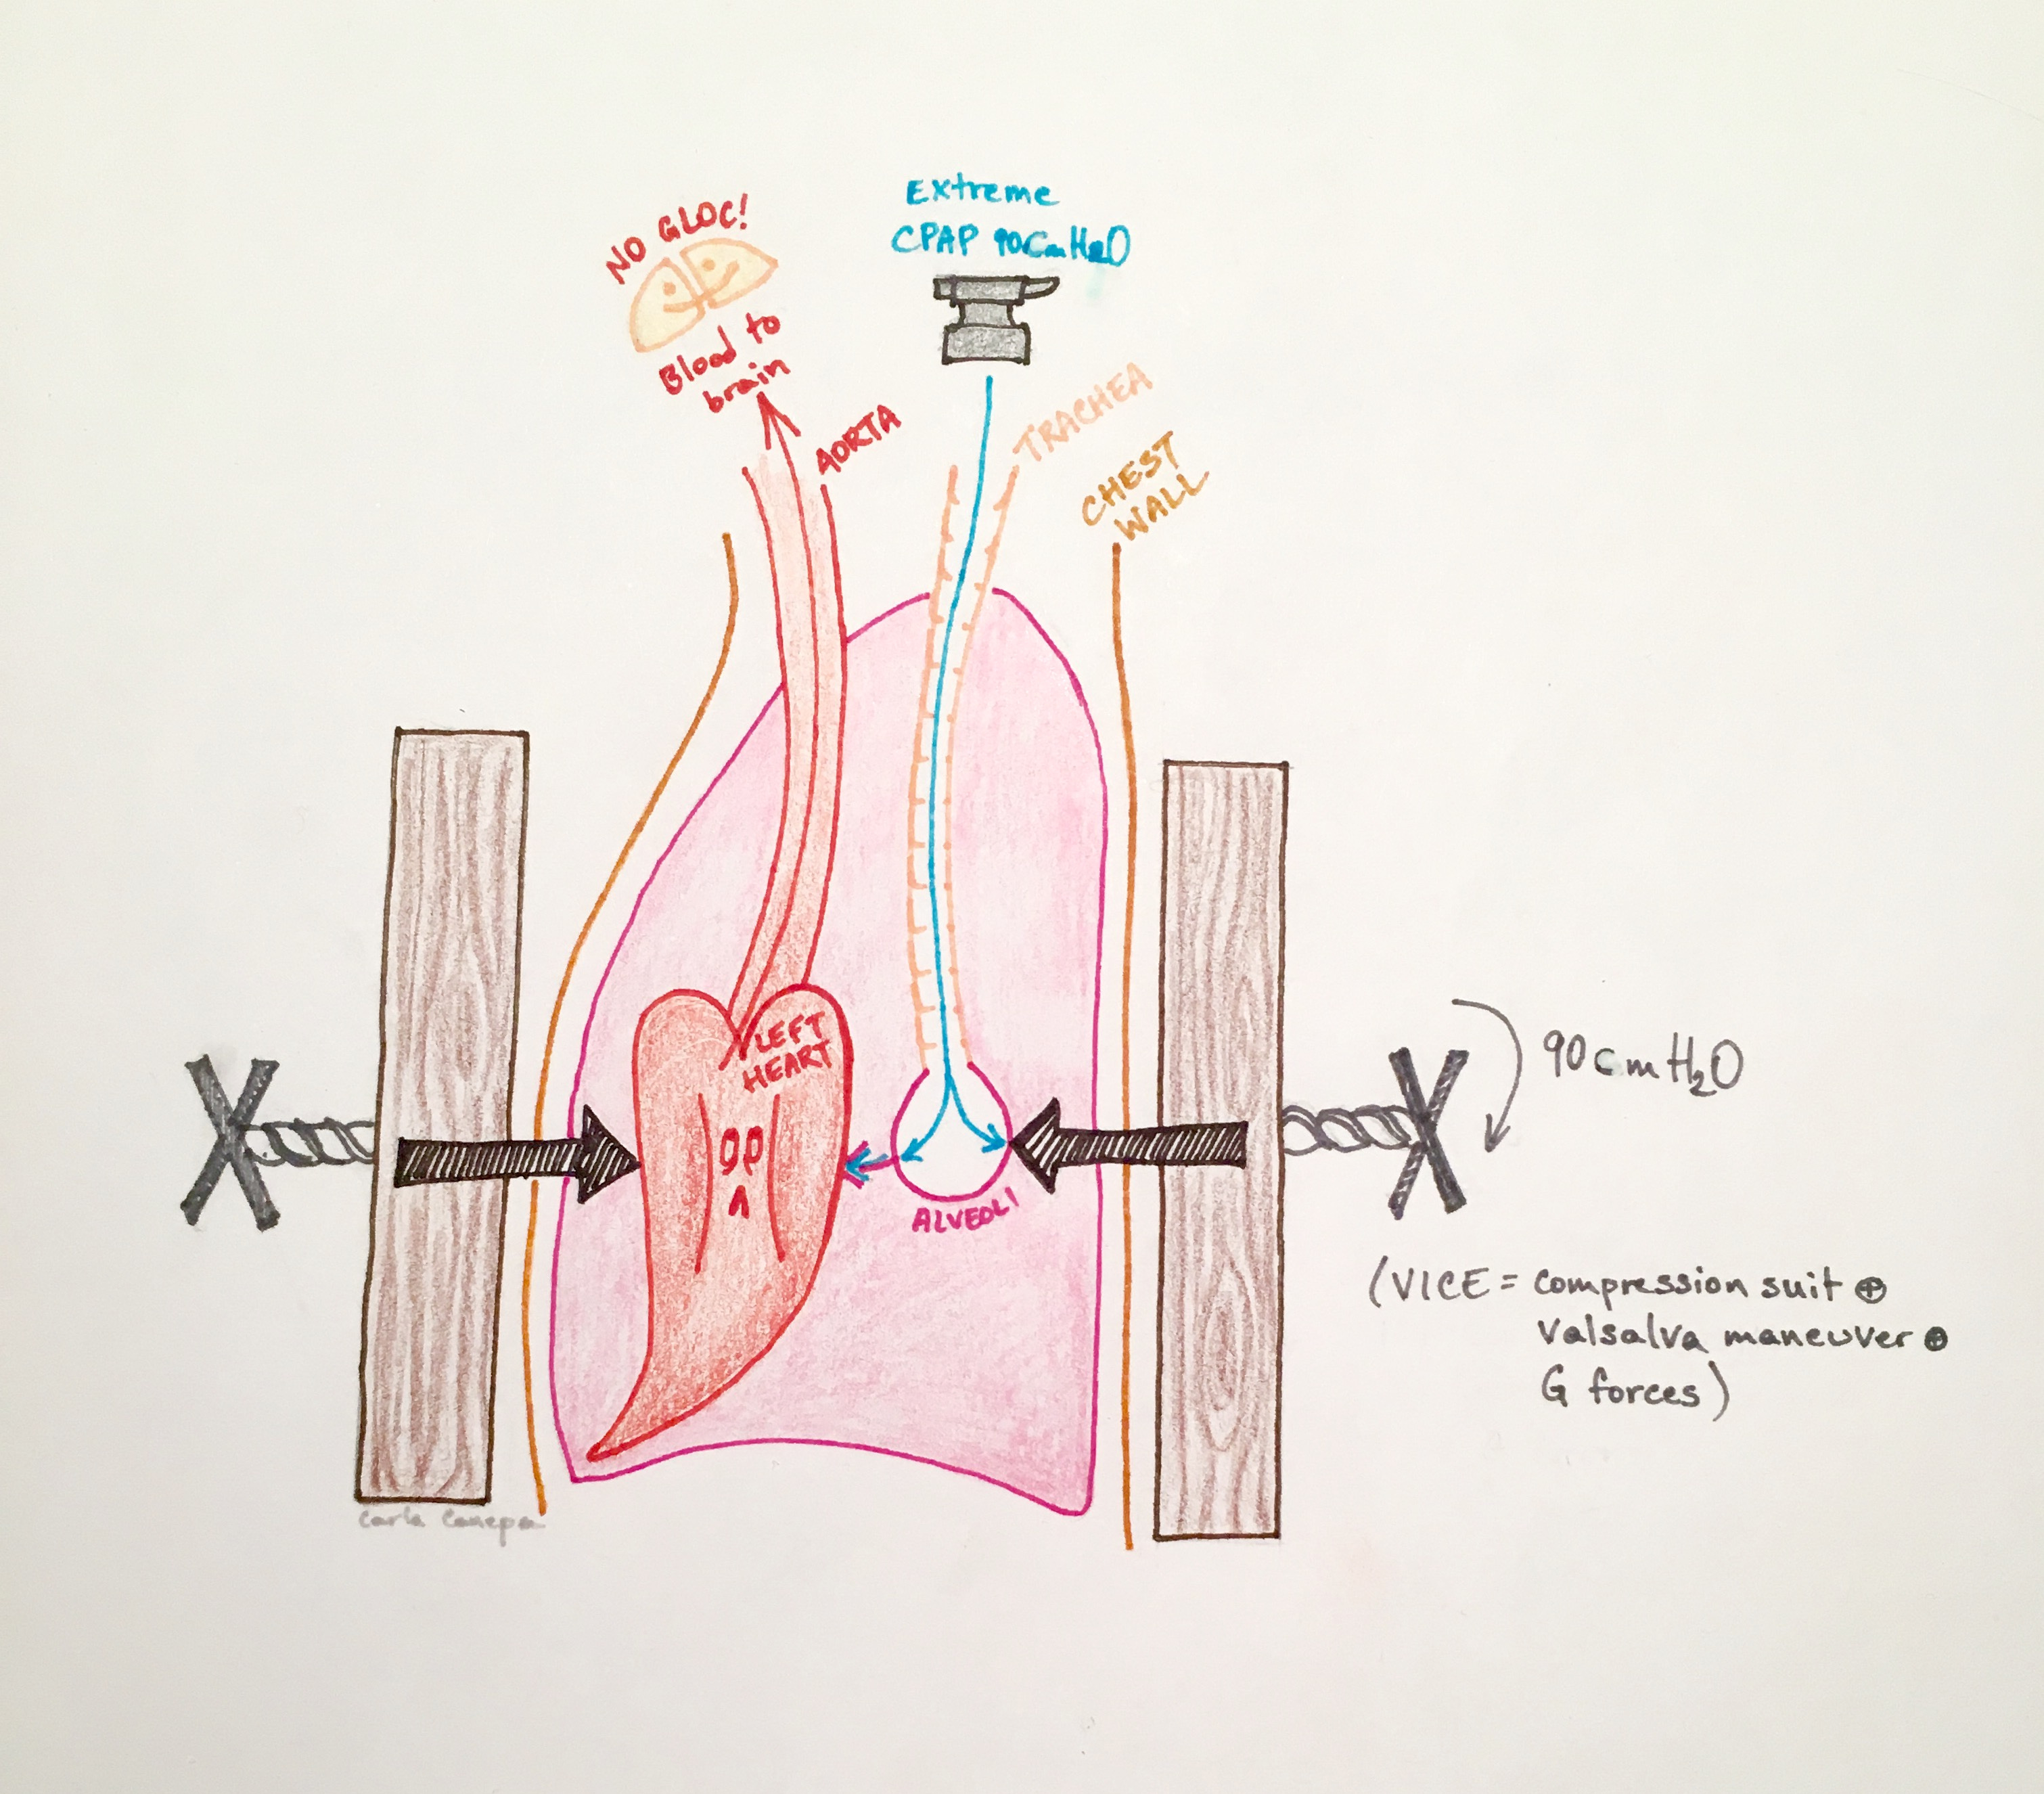 NO GLOC!
Blood to
brain
Extreme
CPAP 90cm H2O
AORTA
TRACHEA
CHEST
WALL
LEFT
HEART
ALVEOLI
90 cm H₂O
(VICE = compression suit ⊕
valsalva maneuver ⊕
G forces)
Carla Canepa